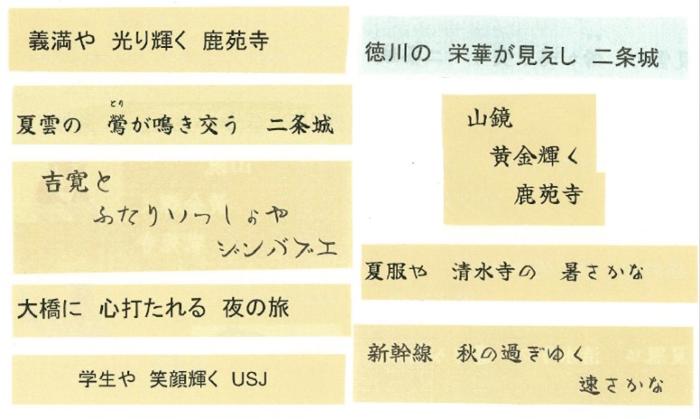 義満や 光り輝く 鹿苑寺
とり
夏雲の 鶯が鳴き交う 二条城
吉寛と
ふたりいっしょや
ジンバブエ
大橋に 心打たれる 夜の旅
学生や 笑顔輝く USJ
徳川の 栄華が見えし 二条城
山鏡
黄金輝く
鹿苑寺
夏服や 清水寺の 暑さかな
新幹線 秋の過ぎゆく
速さかな